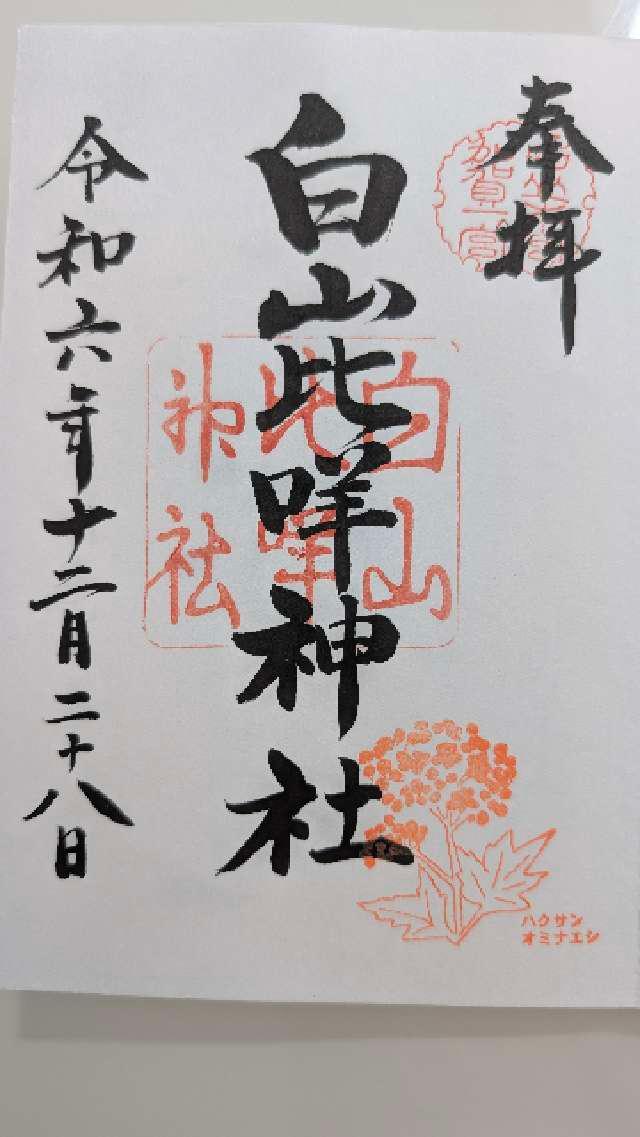 奉拝
加賀一宮
白山比咩神社
白山
比咩
神社
令和六年十二月二十八日
ハクサン
オミナエシ